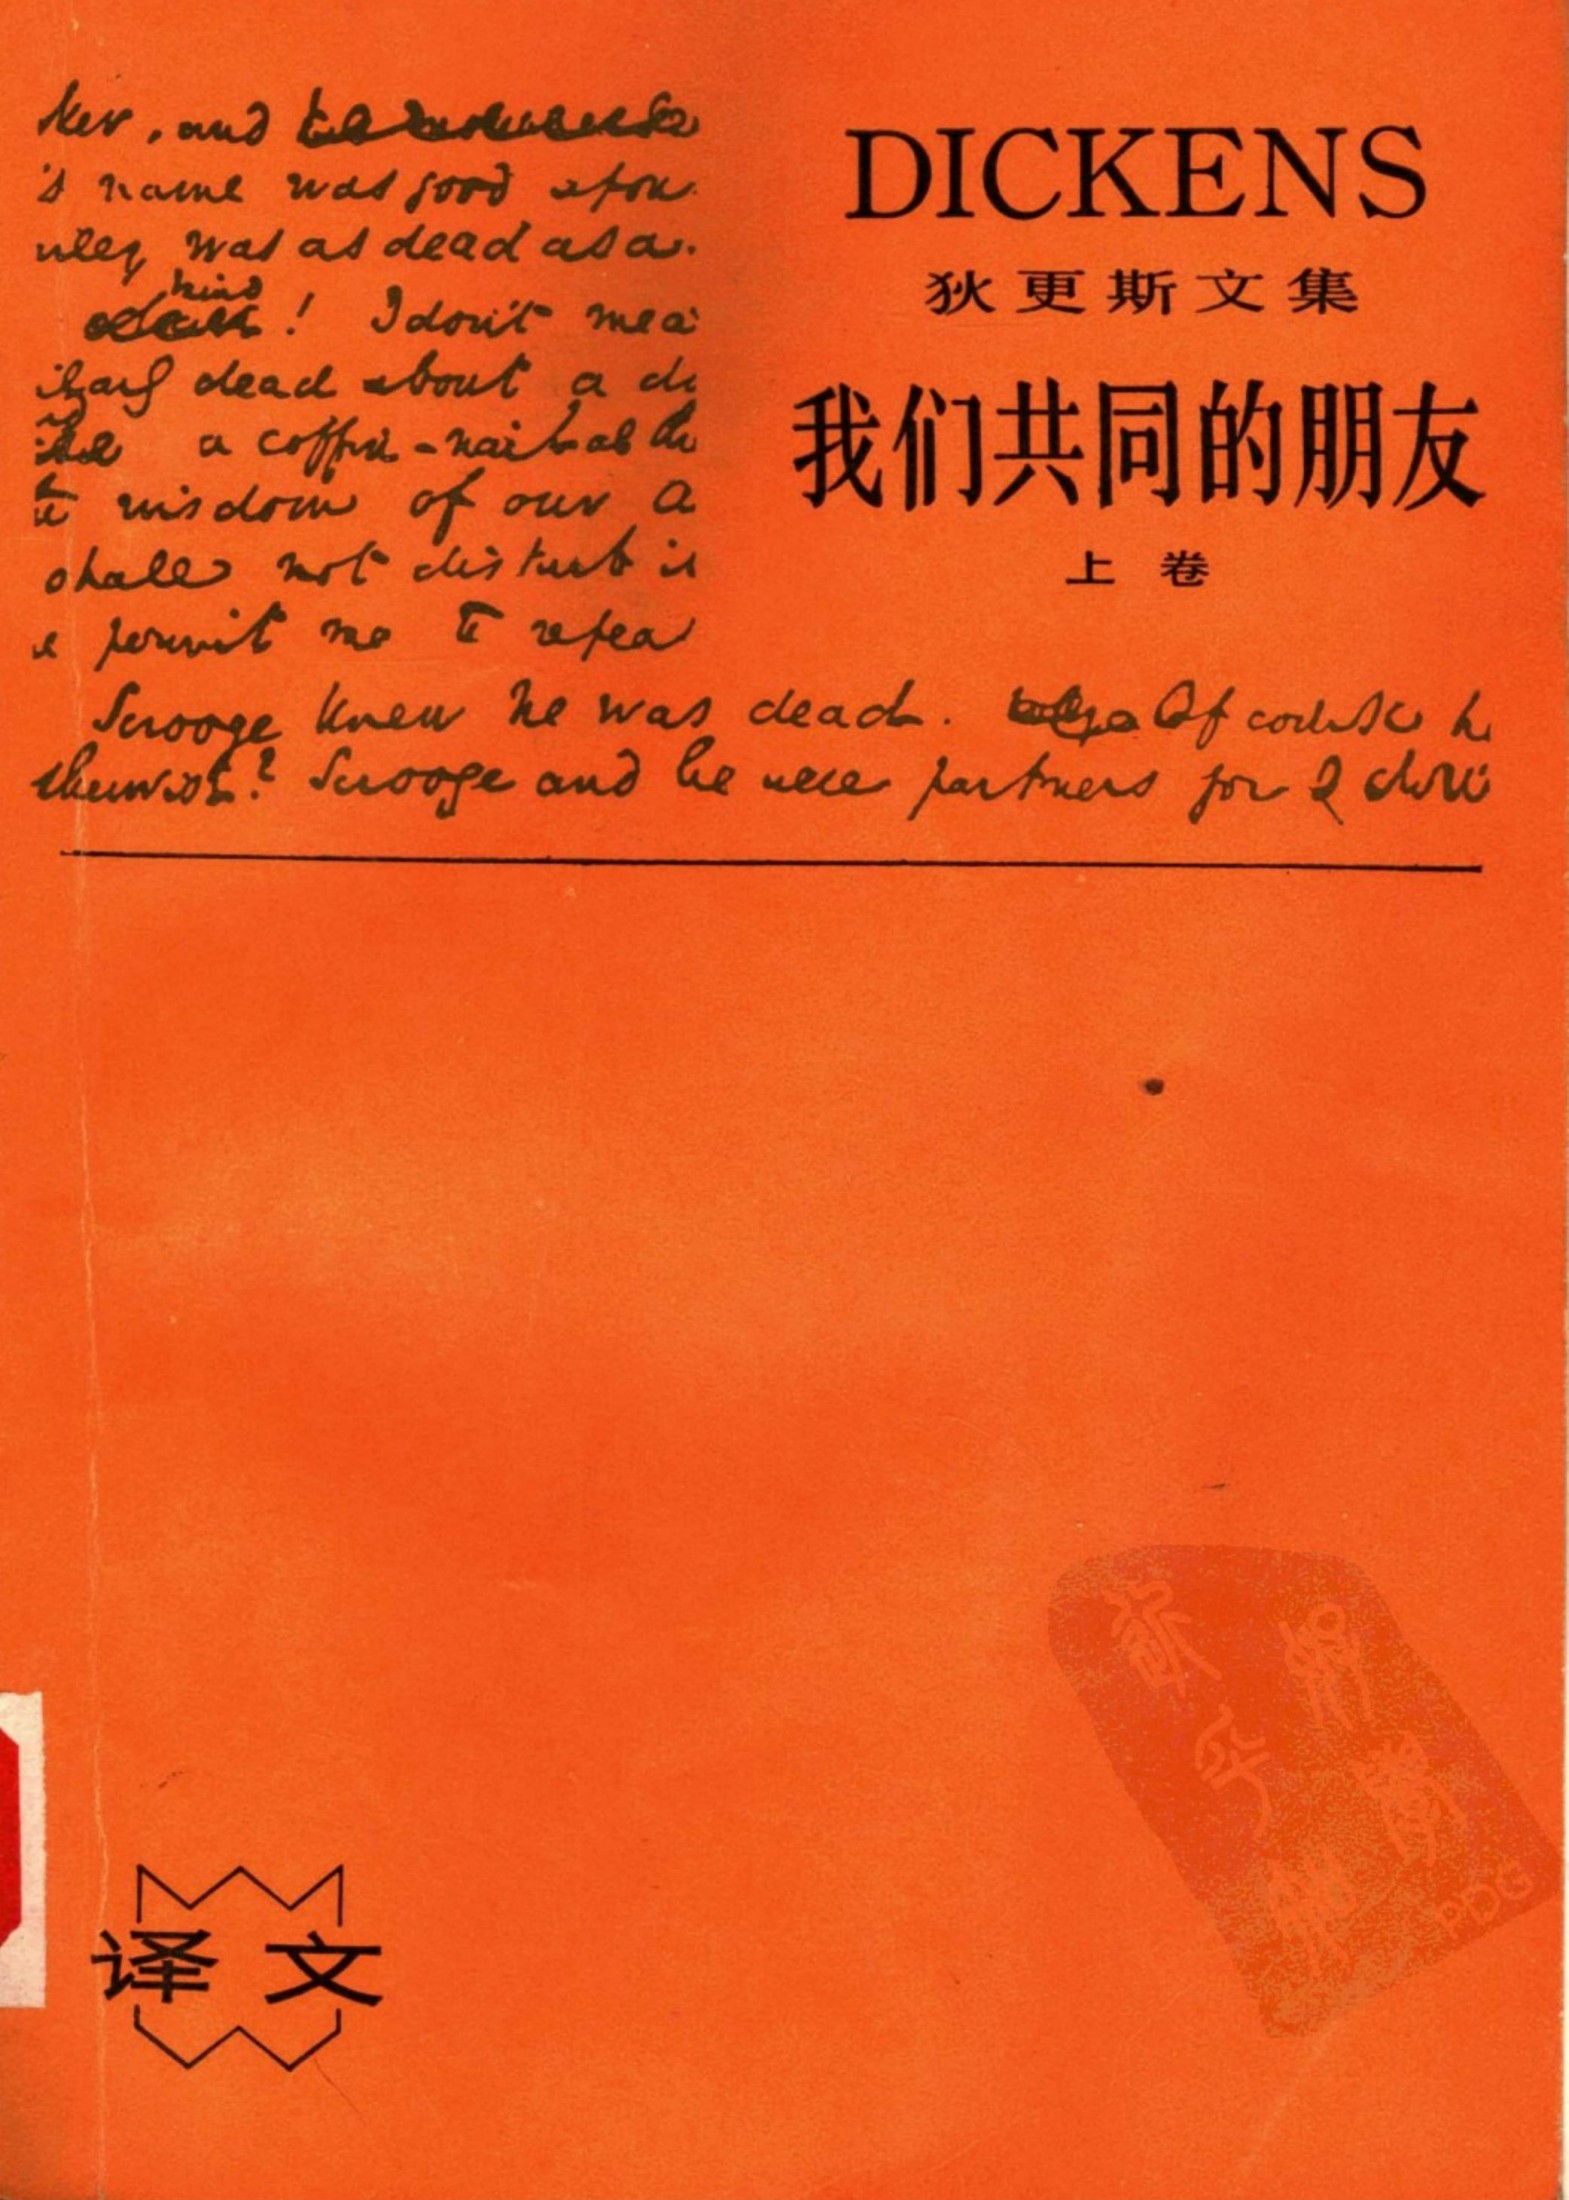 ker, and
's name was good upon
rley was as dead as a
kind
! I don't mea
ularly dead about a do
a coffin-nail as the
wisdom of our a
shall not disturb it
e permit me to repea
Scrooge knew he was dead. Of course h
otherwise? Scrooge and he were partners for I don't
DICKENS
狄更斯文集
我们共同的朋友
上卷
译文
PDG